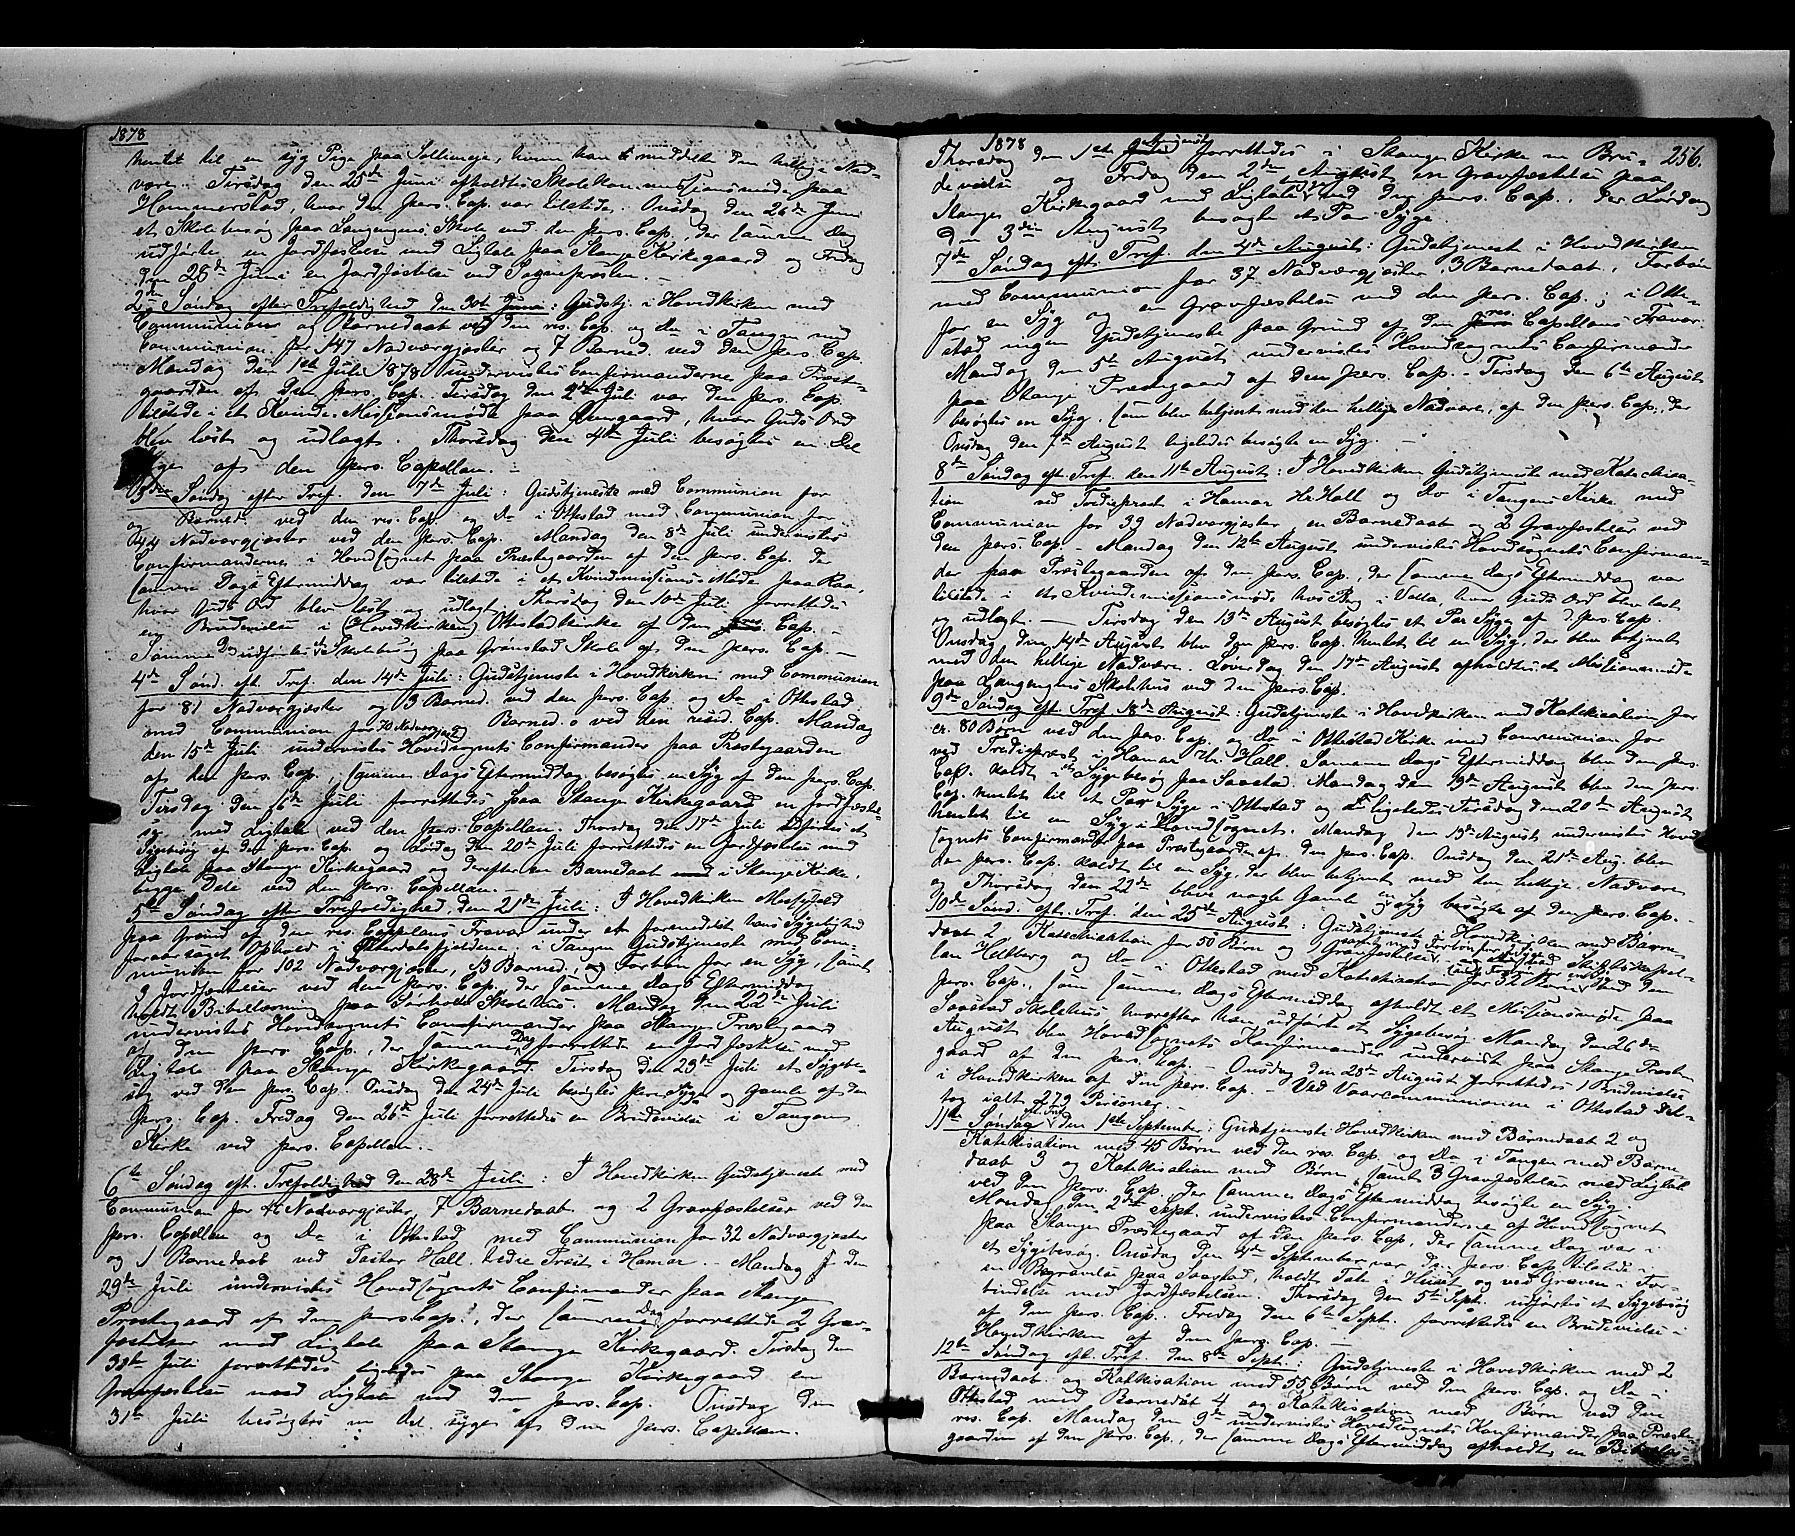 1878
hentet til en syg Pige paa Sollieneje, hvem han meddelte den hellige Nad-
vere. Tirsdag den 25de Juni afholdtes Skolekommissionsmøde paa
Hommerstad, hvor den pers. Cap. var tilstede. Onsdag den 26de Juni
et Skolebesøg paa Langengens Skole ved den pers. Cap., der samme Dag
udførte en Jordfæstelse med Ligtale paa Stange Kirkegaard og Fredag
den 28de Juni en Jordfæstelse ved Sognepræsten. —
2den Søndag efter Trefoldighed den 30te Juni: Gudstj. i Hovedkirken med
Communion og Barnedaab ved den res. Cap. og Do i Tangen med
Communion for 147 Nadvergjæster og 7 Barned. ved den pers. Cap.
Mandag den 1ste Juli 1878 undervistes Confirmanderne paa Præst-
gaarden af den pers. Cap. Tirsdag den 2den Juli var den pers. Cap.
tilstede i et Kvinde-Missionsmøde paa Ringgaard, hvor Guds Ord
blev læst og udlagt. Thorsdag den 4de Juli besøgtes en Del
Syge af den pers. Capellan. —
3die Søndag efter Tref. den 7de Juli: Gudstjeneste med Communion for
og Barned. ved den res. Cap. og Do i Ottestad med Communion for
44 Nadvergjæster ved den pers. Cap. Mandag den 8de Juli undervistes
Confirmanderne i Hovedsognet paa Præstegaarden af den pers. Cap. der
samme Dags Eftermiddag var tilstede i et Kvindemissions Møde paa Raa,
hvor Guds Ord blev læst og udlagt. Thorsdag den 10de Juli forrettedes
en Brudevielse i (Hovedkirken) Ottestad Kirke af den res. Cap. —
Samme Dag udførtes et Skolebesøg paa Grønstad Skole af den pers. Cap. —
4de Sønd. eft. Tref. den 14de Juli: Gudstjeneste i Hovedkirken med Communion
for 81 Nadvergjæster og 3 Barned. ved den pers. Cap. og Do i Ottestad
med Communion for 70 Nadvergjæster Barned. 0 ved den resid. Cap. Mandag
den 15de Juli undervistes Hovedsognets Confirmander paa Præstegaarden
af den pers. Cap., samme Dags Eftermiddag besøgtes en Syg af den pers. Cap.
Tirsdag den 16de Juli forrettedes paa Stange Kirkegaard en Jordfæstel-
se med Ligtale ved den pers. Capellan. Thorsdag den 17de Juli udførtes et
Sygebesøg af den pers. Cap. og Lørdag den 20de Juli forrettedes en Jordfæstelse med
Ligtale paa Stange Kirkegaard og derefter en Barnedaab i Stange Kirke,
begge Dele ved den pers. Capellan. —
5te Søndag efter Trefoldighed, den 21de Juli: I Hovedkirken Messefald
paa Grund af den res. Capellans Fravær under et formedelst hans Sygelighed
foraarsaget Ophold i Østerdalsfjeldene, i Tangen Gudstjeneste med Com-
munion for 102 Nadvergjæster, 13 Barned., Forbøn for en Syg, samt
9 Jordfæstelser ved den pers. Cap., der samme Dags Eftermiddag
holdt Bibellæsning paa Skolehus. Mandag den 22de Juli
undervistes Hovedsognets Confirmander paa Stange Præstegaard
af den pers. Cap., der samme Dag forrettede en Jordfæstelse med
Ligtale paa Stange Kirkegaard. Tirsdag den 23de Juli et Sygebe-
søg ved den pers. Cap. Onsdag den 24de Juli besøgtes flere Syge og Gamle af den
pers. Cap. Fredag den 26de Juli forrettedes en Brudevielse i Tangens
Kirke ved pers. Capellan. —
6te Søndag eft. Trefoldighed den 28de Juli: I Hovedkirken Gudstjeneste med
Communion for Nadvergjæster, 7 Barnedaab og 2 Gravfæstelser ved den
pers. Capellan og Do i Ottestad med Communion for 32 Nadvergjæster
og 1 Barnedaab ved Pastor Hall, tredie Præst i Hamar. — Mandag den
29de Juli undervistes Hovedsognets Confirmander paa Stange
Præstegaard af den pers. Cap., der samme Dag forrettede 2 Grav-
fæstelser med Ligtale paa Stange Kirkegaard. Tirsdag den
30te Juli forrettedes ligeledes paa Stange Kirkegaard en
Gravfæstelse med Ligtale ved den pers. Cap. Onsdag den
31te Juli besøgtes en Del syge af den pers. Capellan.
1878
256.
Thorsdag den 1ste August forrettedes i Stange Kirke en Bru-
devielse og Fredag den 2den August en Gravfæstelse paa
Stange Kirkegaard med Ligtale ved den pers. Cap., der Lørdag
den 3die August besøgte et Par Syge.
7de Søndag eft. Tref. den 4de August: Gudstjeneste i Hovedkirken
med Communion for 37 Nadvergjæster, 3 Barnedaab, Forbøn
for en Syg og en Gravfæstelse ved den pers. Cap.; i Otte-
stad ingen Gudstjeneste paa Grund af den res. Capellans Fravær.
Mandag den 5te August undervistes Hovedsognets Confirmander
paa Stange Præstegaard af den pers. Cap. — Tirsdag den 6te August
besøgtes en Syg, som blev betjent med den hellige Nadvere, af den pers. Cap., der
Onsdag den 7de August ligeledes besøgte en Syg. —
8de Søndag eft. Tref. den 11te August: I Hovedkirken Gudstjeneste med Katechisa-
tion ved Trediepræst i Hamar Hr Hall og Do i Tangen Kirke med
Communion for 39 Nadvergjæster, en Barnedaab og 2 Gravfæstelser ved
den pers. Cap. — Mandag den 12te August undervistes Hovedsognets Confirman-
der paa Præstegaarden af den pers. Cap., der samme Dags Eftermiddag var
tilstede i et Kvindemissionsmøde hos Berg i Valla, hvor Guds Ord blev læst
og udlagt. — Tirsdag den 13de August besøgtes et Par Syge af d. pers. Cap.
Onsdag den 14de August blev den pers. Cap. hentet til en Syg, der blev betjent
med den hellige Nadvere. Løverdag den 17de August afholdtes et Missionsmøde
paa Langengens Skolehus ved den pers. Cap.
9de Søndag eft. Tref. 18de August: Gudstjeneste i Hovedkirken med Katekisation for
cr. 80 Børn ved den pers. Cap. og Do i Ottestad Kirke med Communion for
ved Trediepræst i Hamar Hr. Hall. Samme Dags Eftermiddag blev den pers.
Cap. kaldt i et Sygebesøg paa Saastad. Mandag den 19de August blev den pers.
Cap. hentet til et Par Syge i Ottestad og ligeledes Tirsdag den 20de August
hentet til en Syg i Hovedsognet. Mandag den 19de August undervistes Hoved-
sognets Confirmander paa Præstegaarden af den pers. Cap. Onsdag den 21de Aug. blev
den pers. Cap. kaldt til en Syg, der blev betjent med den hellige Nadvere
og Thorsdag den 22de bleve nogle Gamle og Syg besøgte af den pers. Cap.
10de Sønd. eft. Tref. den 25de August: Gudstjeneste i Hovedkirken med Barne-
daab 2 Katechisation for 50 Børn og Gravfæstelse samt med Forbøn for Syge ved Skibskapel-
lan Hellberg og Do i Ottestad med Katekisation for 32 Børn samt Forbøn for en Syg ved den
pers. Cap., som samme Dags Eftermiddag afholdt et Missionsmøde paa
Saastad Skolehus hvorefter han udførte et Sygebesøg. Mandag den 26de
August blev Hovedsognets Konfirmander undervist paa Stange Præste-
gaard af den pers. Cap. — Onsdag den 28de August forrettedes 1 Brudevielse
i Hovedkirken af den pers. Cap. Ved Vaarcommunionerne i Ottestad del-
tog ialt 279 Personer. —
11te Søndag eft. Tref. den 1ste September: Gudstjeneste i Hovedkirken med Barnedaab 2 og
Katekisation med 45 Børn ved den res. Cap. og Do i Tangen med Barne-
daab 3 og Katekisation med Børn, samt 3 Gravfæstelser med Ligtale
ved den pers. Cap. der samme Dags Eftermiddag besøgte en Syg.
Mandag den 2den Sept. undervistes Confirmanderne af Hovedsognet
paa Stange Præstegaard af den pers. Cap., der samme Dag var i
et Sygebesøg. Onsdag den 4de September var den pers. Cap. tilstede i
en Begravelse paa Saastad, holdt Tale i Huset og ved Graven i For-
bindelse med Jordfæstelsen. Thorsdag den 5te Sept. udførtes et Sygebesøg
af den pers. Cap. Fredag den 6te Sept. forrettedes en Brudevielse i
Hovedkirken af den pers. Cap. —
12te Søndag eft. Tref. den 8de Sept.: Gudstjeneste i Hovedkirken med 2
Barnedaab og Katekisation med 55 Børn ved den pers. Cap. og Do i
Ottestad med Barnedåb 4 og Katekisation med Børn ved den
res. Cap. Mandag den 9de undervistes Hovedsognets Konfirmander paa Præste-
gaarden af den pers. Cap., der samme Dags Eftermiddag afholdt en Bibellæs-